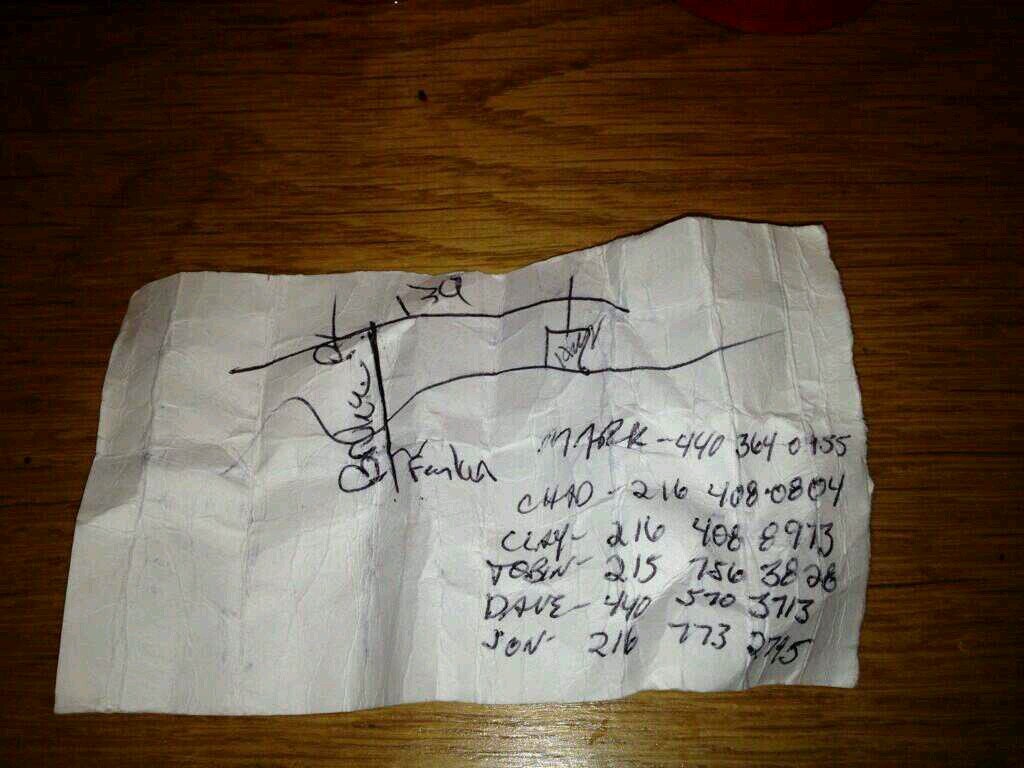 139
MARK - 440 364 0455
CHAD - 216 408-0804
CLAY - 216 408 8973
TOBIN - 215 756 3828
DAVE - 440 570 3713
JON - 216 773 2795